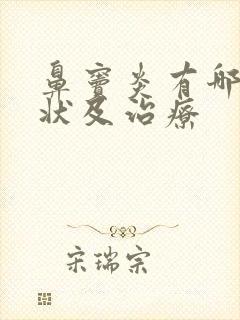 鼻窦炎有哪
状及治疗
宋瑞宗